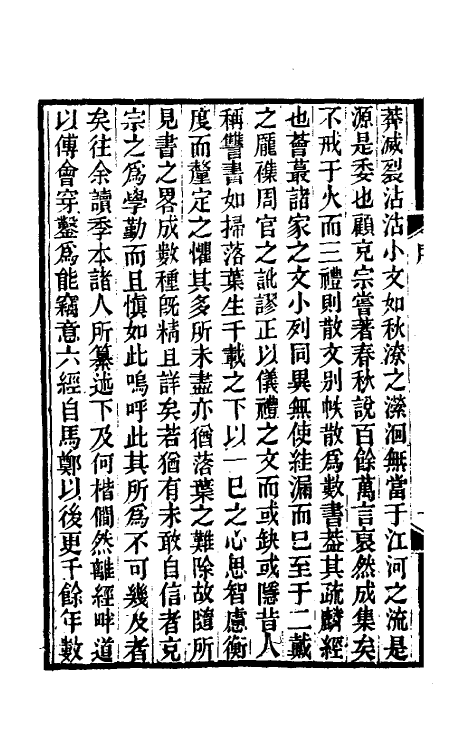 莽滅裂沾沾小文如秋潦之濴洄無當于江河之流是
源是委也顧克宗嘗著春秋說百餘萬言裒然成集矣
不戒于火而三禮則散文别帙散爲數書葢其疏麟經
也薈蕞諸家之文小列同異無使絓漏而已至于二戴
之龎襍周官之訛謬正以儀禮之文而或缺或隱昔人
稱讐書如掃落葉生千載之下以一已之心思智慮衡
度而釐定之懼其多所未盡亦猶落葉之難除故隨所
見書之畧成數種旣精且詳矣若猶有未敢自信者克
宗之爲學勤而且愼如此嗚呼此其所爲不可幾及者
矣往余讀季本諸人所纂述下及何楷僩然離經畔道
以傅會穿鑿爲能竊意六經自馬鄭以後更千餘年數
序